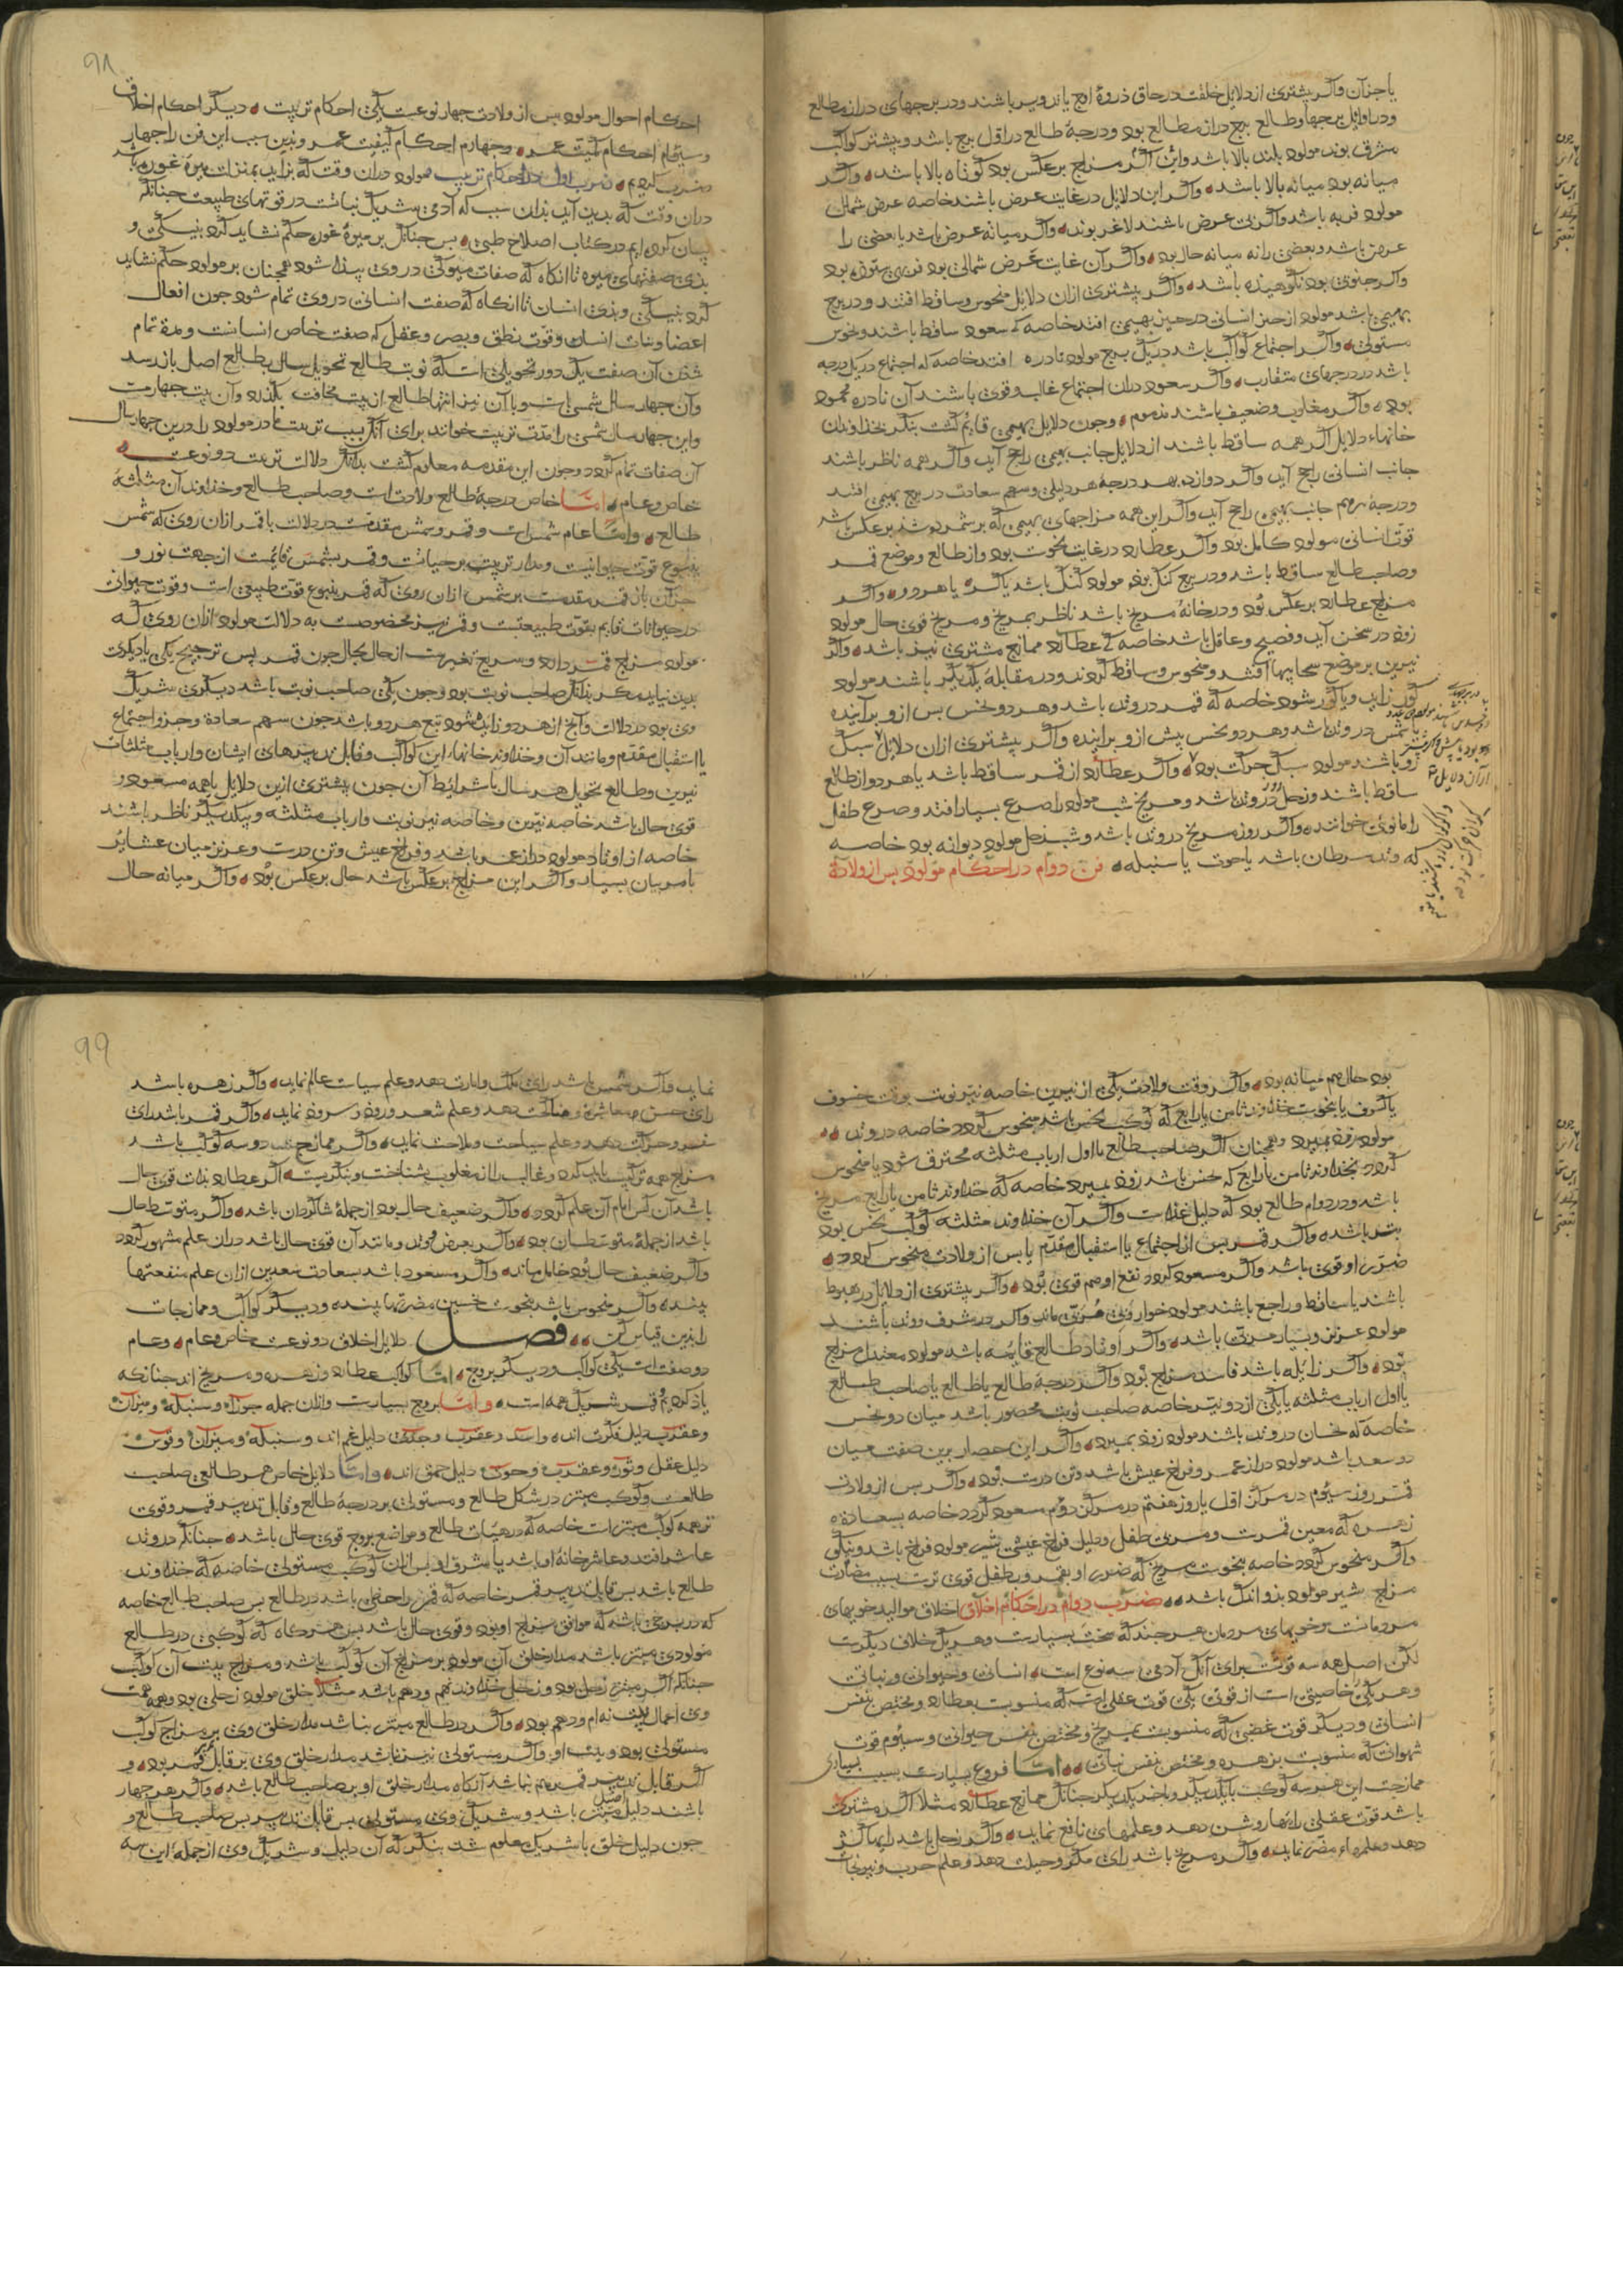 یا جز آن واکر پیشتری از دلایل خلقت در حاق ذروهٔ اوج یا تدویر باشند و در برجهای دراز مطالع
و در اوایل برجها و طالع برج دراز مطالع بود و درجهٔ طالع در اول برج باشد و پیشتر کواکب
مشرقی بوند مولود بلند بالا باشد و این اکر مزاج برعکس بود کوتاه بالا باشد و اکر
میانه بود میانه بالا باشد واکر این دلایل در غایت عرض باشند خاصه عرض شمالی
مولود فربه باشد واکر بی عرض باشند لاغر بوند واکر میانه عرض باشد یا بعضی را
عرض باشد و بعضی را نه میانه حال بود واکر آن غایت عرض شمالی بود فربهی ستوده بود
واکر جنوبی بود نکوهیذه باشد واکر پیشتری ازان دلایل منحوس و ساقط افتند و در برج
بهیمی باشد مولود از حیز انسانی در حیز بهیمی افتد خاصه که سعود ساقط باشند و نحوس
مستولی واکر اجتماع کواکب باشد در یک برج مولود نادره افتد خاصه که اجتماع در یک درجه
باشد در درجهای متقارب واکر سعود دران اجتماع غالب و قوی باشند آن نادره محمود
بود واکر مغلوب و ضعیف باشند مذموم وجون دلایل بهیمی قایم کشت بنکر بخذاوندان
خانهاء دلایل اکر همه ساقط باشند از دلایل جانب بهیمی راجح آید واکر همه ناظر باشند
جانب انسانی راجح آید واکر دوازده بهر درجهٔ هر دلیلی و سهم سعادت در برج بهیمی افتد
و درجهٔ نهم جانب بهیمی راجح آید واکر این همه مزاجهای بهیمی که بر شمرده شد برعکس باشد
قوت انسانی مولود کامل بود واکر عطارد در غایت نحوست بود و از طالع و موضع قمر
و صاحب طالع ساقط باشد و در برج کنک بود مولود کنک باشد یا کر یا هردو واکر
مزاج عطارد برعکس بود و در خانهٔ مریخ باشد ناظر بمریخ و مریخ قوی حال مولود
زود در سخن آید و فصیح و عاقل باشد خاصه که عطارد ممازج مشتری نیز باشد واکر
نیرین بر موضع سحابیها افتند و منحوس و ساقط کردند و در مقابلهٔ یکدیکر باشند مولود
کور زاید و یا کور شود خاصه که قمر در وتد باشد و هر دو نحس پس ازو برآینده
یا شمس در وتد باشد و هر دو نحس پیش ازو برآینده واکر پیشتری ازان دلایل سبک
رو باشند مولود سبک حرکت بود واکر عطارد از قمر ساقط باشد یا هر دو از طالع
ساقط باشند و زحل روز در وتد باشد و مریخ شب مولود را صرع بسیار افتد و صرع طفل
را مانوی خوانند واکر روز مریخ در وتد باشد و شب زحل مولود دیوانه بود خاصه
که وتد سرطان باشد یا حوت یا سنبله فن دوام در احکام مولود بس از ولادة
۹۸
احکام احوال مولود بس از ولادت جهار نوعست یکی احکام تربیت دیکر احکام اخلاق
و سیوم احکام کمیت عمر و جهارم احکام کیفیت عمر و بذین سبب این فن را جهار
ضرب کردیم ضرب اول در احکام تربیت مولود دران وقت که بزاید بمنزلت میوهٔ غوره باشد
دران وقت که بدید آید بذان سبب که آدمی شریک نباتست در قوتهای طبیعت جنانکه
بیان کرده ایم در کتاب اصلاح طبی بس جنانک بر میوهٔ غوره حکم نشاید کرد بنیکی و
بذی صفتهای میوه تا آنکاه که صفات میوکی در وی پیذا شود همچنان بر مولود حکم نشاید
کرد بنیکی و بذی انسان تا آنکاه که صفت انسانی در وی تمام شود جون افعال
اعضا و ثبات انسان و قوت نطق و بصر و عقل که صفت خاص انسانست و مدهٔ تمام
شذن آن صفت یک دور تحویلی است که نوبت طالع تحویل سال بطالع اصل باز رسد
و آن جهار سال شمسی است و با آن نیز انتها طالع از بیت مخافت بکذرد و آن بیت جهارمست
و این جهار سال شمسی را مدت تربیت خوانند برای آنک سبب تربیت مادر مولود را درین جهار سال
آن صفات تمام کردد و جون این مقدمه معلوم کشت بدانک دلالت تربیت دو نوعست
خاص و عام اما خاص درجهٔ طالع ولادت است و صاحب طالع و خذاوند آن مثلثهٔ
طالع واما عام شمس است و قمر و شمس مقدمست در دلالت با قمر ازان روی که شمس
ینبوع قوت حیوانیست و مدار تربیت بر حیاتست و قمر بشمس قایمست از جهت نور و
جز آن باز قمر مقدمست بر شمس ازان روی که قمر ینبوع قوت طبیعی است و قوت حیوانی
در حیوانات قایم بقوت طبیعتست و قمر نیز مخصوصست به دلالت مولود ازان روی که
مولود مزاج قمر دارد و سریع تغیرست از حال بحال جون قمر پس ترجیح یکی بادیکری
بدین نیاید مکر بذانک صاحب نوبت بود و جون یکی صاحب نوبت باشد دیکری شریک
وی بود در دلالت و آنج از هر دو زاید شود تبع هر دو باشد جون سهم سعادة و جزو اجتماع
یا استقبال مقدم و مانند آن و خذاوند خانهاء این کواکب و قابل تدبیرهای ایشان و ارباب مثلثات
نیرین و طالع تحویل هر سال باشرایط آن جون پیشتری ازین دلایل یا همه مسعود و
قوی حال باشد خاصه نیرین و خاصه نیر نوبت و ارباب مثلثه و بیکدیکر ناظر باشند
خاصه از اوتاد مولود دراز عمر باشد و فراخ عیش و تن درست و عزیز میان عشایر
با مربیان بسیار واکر این مزاج برعکس باشد حال برعکس بود واکر میانه حال
بود حال هم میانه بود واکر وقت ولادت یکی از نیرین خاصه نیر نوبت بوقت خسوف
یا کسوف یا بنحوست خذاوند ثامن یا رابع که کوکب نحس باشد منحوس کردد خاصه در وتد
مولود زود بمیرد و همچنان اکر صاحب طالع یا اول ارباب مثلثه محترق شود یا منحوس
کردد بخذاوند ثامن یا رابع که نحس باشد زود بمیرد خاصه که خذاوند ثامن یا رابع مریخ
باشد و در دوام طالع بود که دلیل غذاست واکر آن خذاوند مثلثه کوکب نحس بود
بتر باشد واکر قمر بس از اجتماع یا استقبال مقدم یا بس از ولادت منحوس کردد
ضرر او قوی باشد واکر مسعود کردد نفع او هم قوی بود واکر پیشتری از دلایل در هبوط
باشند یا ساقط و راجع باشند مولود خوار و بی مربی ماند واکر در شرف و وتد باشند
مولود عزیز و بسیار مربی باشد واکر اوتاد طالع قایمه باشد مولود معتدل مزاج
بود واکر زایله باشد فاسد مزاج بود واکر درجهٔ طالع یا طالع یا صاحب طالع
یا اول ارباب مثلثه یا یکی از دو نیر خاصه صاحب نوبت محصور باشد میان دو نحس
خاصه که نحسان در وتد باشند مولود زود بمیرد واکر این حصار برین صفت میان
دو سعد باشد مولود دراز عمر و فراخ عیش باشد و تن درست بود واکر بس از ولادت
قمر روز سیوم در مرکز اول یا روز هفتم در مرکز دوم مسعود کردد خاصه بسعادة
زهره که معین قمرست و مربی طفل و دلیل فراخ عیشی شیر مولود فراخ باشد و نیکو
واکر منحوس کردد خاصه بنحوست مریخ که ضرر او بقمر و بطفل قوی ترست بسبب مضادت
مزاج شیر مولود بذ و اندک باشد ضرب دوام در احکام اخلاق اخلاق موالید خویهای
مردمانست و خویهای مردمان هرجند که سخت بسیارست و هریک خلاف دیکرست
لکن اصل همه سه قوتست برای آنک آدمی سه نوع است انسانی و حیوانی و نباتی
و هر یکی خاصیتی است از قوتی یکی قوت عقلی است که منسوبست بعطارد و مختص بنفس
انسانی و دیکر قوت غضبی که منسوبست بمریخ و مختص بنفس حیوانی و سیوم قوت
شهوانی که منسوبست بزهره و مختص بنفس نباتی اما فروع بسیارست بسبب بسیاری
ممازجت این هر سه کوکب با یکدیکر و با غیر یکدیکر جنانک ممازج عطارد مثلا اکر مشتری
باشد قوت عقلی رایها روشن دهد و علمهای نافع نماید واکر زحل باشد رایها کژ
دهد و علمهاء مضر نماید واکر مریخ باشد رای مکر و حیلت دهد و علم حرب و نیرنجات
۹۹
نماید واکر شمس باشد رای ملک و امارت دهد و علم سیاست عالم نماید واکر زهره باشد
رای حسن معاشرة و مناکحت دهد و علم شعر و رود و سرود نماید واکر قمر باشد رای
سفر و حرکت دهد و علم سیاحت و ملاحت نماید واکر ممازج دو سه کوکب باشد
مزاج همه ترکیب باید کرد و غالب را از مغلوب بشناخت و بنکریست اکر عطارد بذات قوی حال
باشد آن کس امام آن علم کردد واکر ضعیف حال بود از جملهٔ شاکردان باشد واکر متوسط حال
باشد از جملهٔ متوسطان بود واکر بعرض و وتد و مانند آن قوی حال باشد دران علم مشهور کردد
واکر ضعیف حال بود خامل ماند واکر مسعود باشد بسعادت سعدین ازان علم منفعتها
بیند واکر منحوس باشد بنحوست نحسین مضرتها بیند و دیکر کواکب و ممازجات
را بذین قیاس کن فصل دلایل اخلاق دو نوعست خاص و عام وعام
دو صفت است یکی کواکب و دیکر بروج اما کواکب عطارد و زهره و مریخ اند جنانکه
یاذ کردیم و قمر شریک همه است واما بروج بسیارست و ازان جمله جوزا و سنبله و میزان
و عقرب دلیل فکرت اند و اسد و عقرب و جدی دلیل غم اند و سنبله و میزان و قوس
دلیل عقل و ثور و عقرب و حوت دلیل حمق اند واما دلایل خاص هر طالعی صاحب
طالعست و کوکب مبتز در شکل طالع و مستولی بر درجهٔ طالع و قابل تدبیر قمر و قوی
تر همه کوکب مبتز است خاصه که در هیئات طالع و مواضع بروج قوی حال باشد جنانکه در وتد
عاشر افتد و عاشر خانهٔ او باشد یا شرف او بس ازان کوکب مستولی خاصه که خذاوند
طالع باشد بس قابل تدبیر قمر خاصه که قمر را حظی باشد در طالع بس صاحب طالع خاصه
که در برجی باشد که موافق مزاج او بود و قوی حال باشد بس هرکاه که کوکبی در طالع
مولودی مبتز باشد مدار خلق آن مولود بر مزاج آن کوکب باشد و مزاج بیت آن کوکب
جنانکه اکر مبتز زحل بود و زحل خذاوند نهم و دهم باشد مثلا خلق مولود زحلی بود و همه
وی اعمال بیت نهم و دهم بود واکر در طالع مبتز نباشد مدار خلق وی بر مزاج کوکب
مستولی بود و بیت او واکر مستولی نیز نباشد مدار خلق وی بر قابل تدبیر قمر بود و
اکر قابل تدبیر قمر هم نباشد آنکاه مدار خلق او بر صاحب طالع باشد واکر هر جهار
باشند دلیل اصل مبتز باشد و شریک وی مستولی بس قابل تدبیر بس صاحب طالع و
جون دلیل خلق با شریک معلوم شد بنکر که آن دلیل و شریک وی از جملهٔ این سه